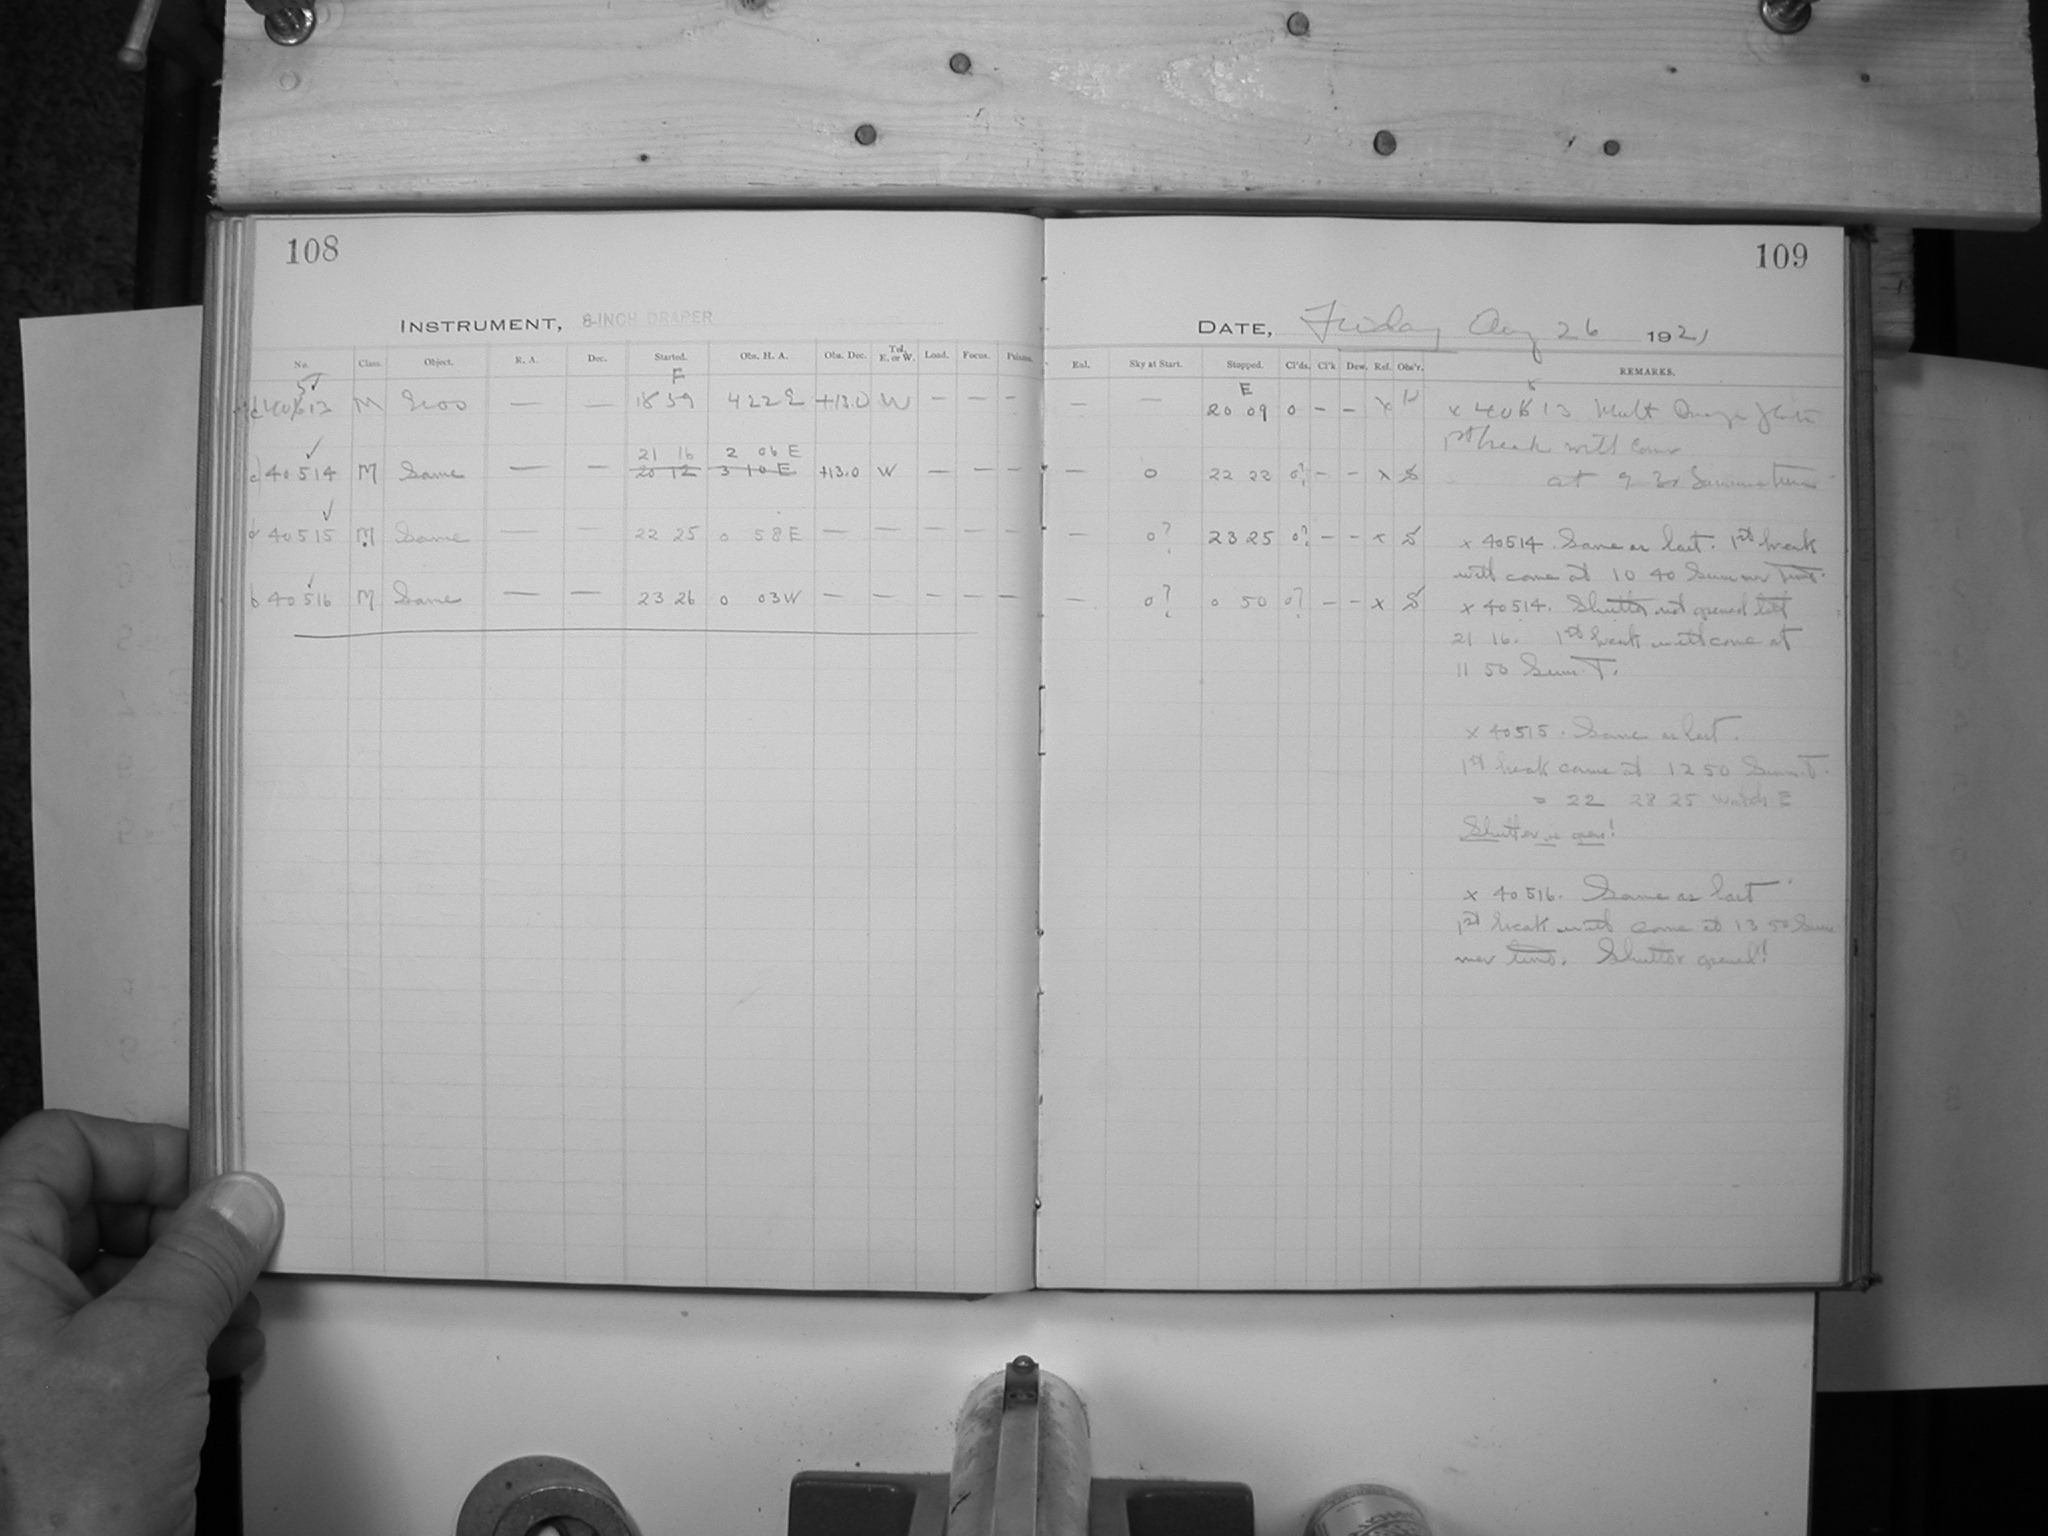 108
INSTRUMENT, 8-INCH DRAPER
No. Class. Object. R. A. Dec. Started. Obs. H. A. Obs. Dec. Tel. E. or W. Load. Focus. Prisms.
F
5
40613 M — — 18 59 4 22 E +13.0 W — — —
21 16 2 06 E
d 40514 M Same — — 20 12 3 10 E +13.0 W — — —
40515 M Same — — 22 25 0 58 E — — — — —
b 40516 M Same — — 23 26 0 03 W — — — — —
109
DATE, Friday Aug 26 1921
Exl. Sky at Start. Stopped. Cl'ds. Cl'k Dew. Ref. Obs'r. REMARKS.
E
— — 20 09 0 — — x
— 0 22 22 0? — — x S
— 0? 23 25 0? — — x S
— 0? 0 50 0? — — x S
5
x 40613 Mult Image
1st break will come
at 9 30 Summer time
x 40514. Same as last. 1st break
will come at 10 40 Summer Time.
x 40514. Shutter not opened till
21 16. 1st break will come at
11 50 Sum. T.
x 40515. Same as last.
1st break came at 12 50 Sum. T.
= 22 28 25 watch E
Shutter is open!
x 40516. Same as last
1st break will come at 13 50 Sum
mer time. Shutter opened!